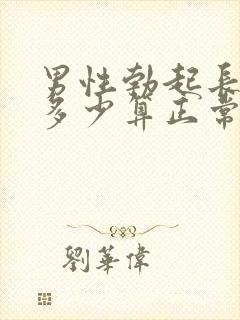 男性勃起長
多少算正常
劉華偉